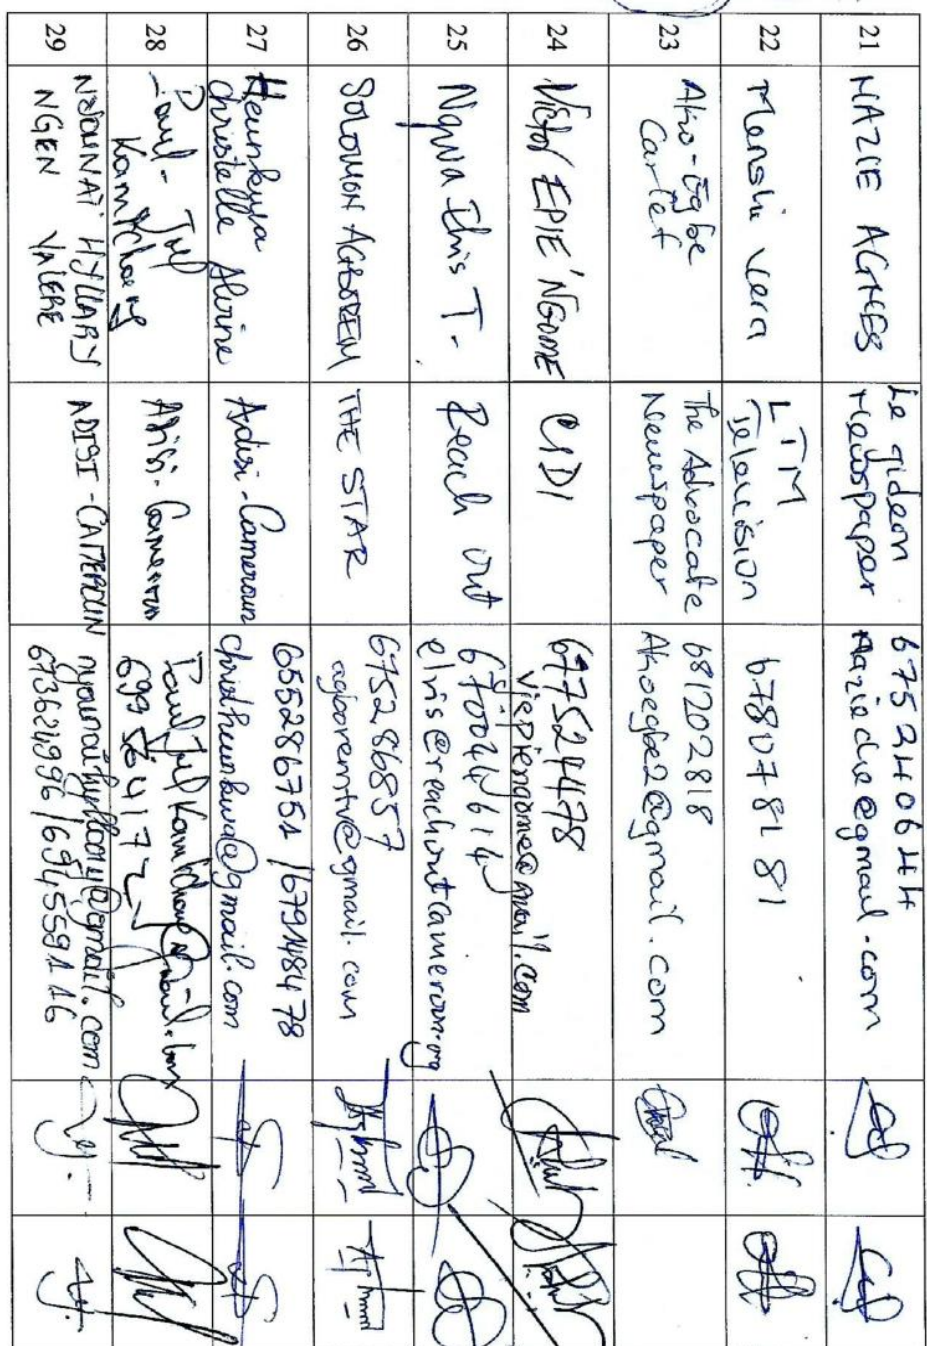 21
NAZIE AGNES
Le gideon
Newspaper
675240644
nazieche@gmail.com
22
Menshi Vera
LTM
Television
678078181
23
Ako-Egbe
Carlef
The Advocate
Newspaper
681202818
Akoegbe2@gmail.com
24
Victor EPIE' NGOME
CIDI
677524478
viepiengome@gmail.com
25
Ngwa Elvis T-
Reach out
670044614
elvis@reachoutcameroon.org
26
SOLOMON AGBOREM
THE STAR
675286857
agboremtv@gmail.com
27
Heunkwa
Christelle Alvine
Adisi-Cameroun
christheunkwa@gmail.com
28
Paul-Joel
Kamtchang
Adisi-Cameroun
29
NJOUNAI HYLLARY
NGEN VALERE
ADISI-CAMEROUN
673624996/694558116